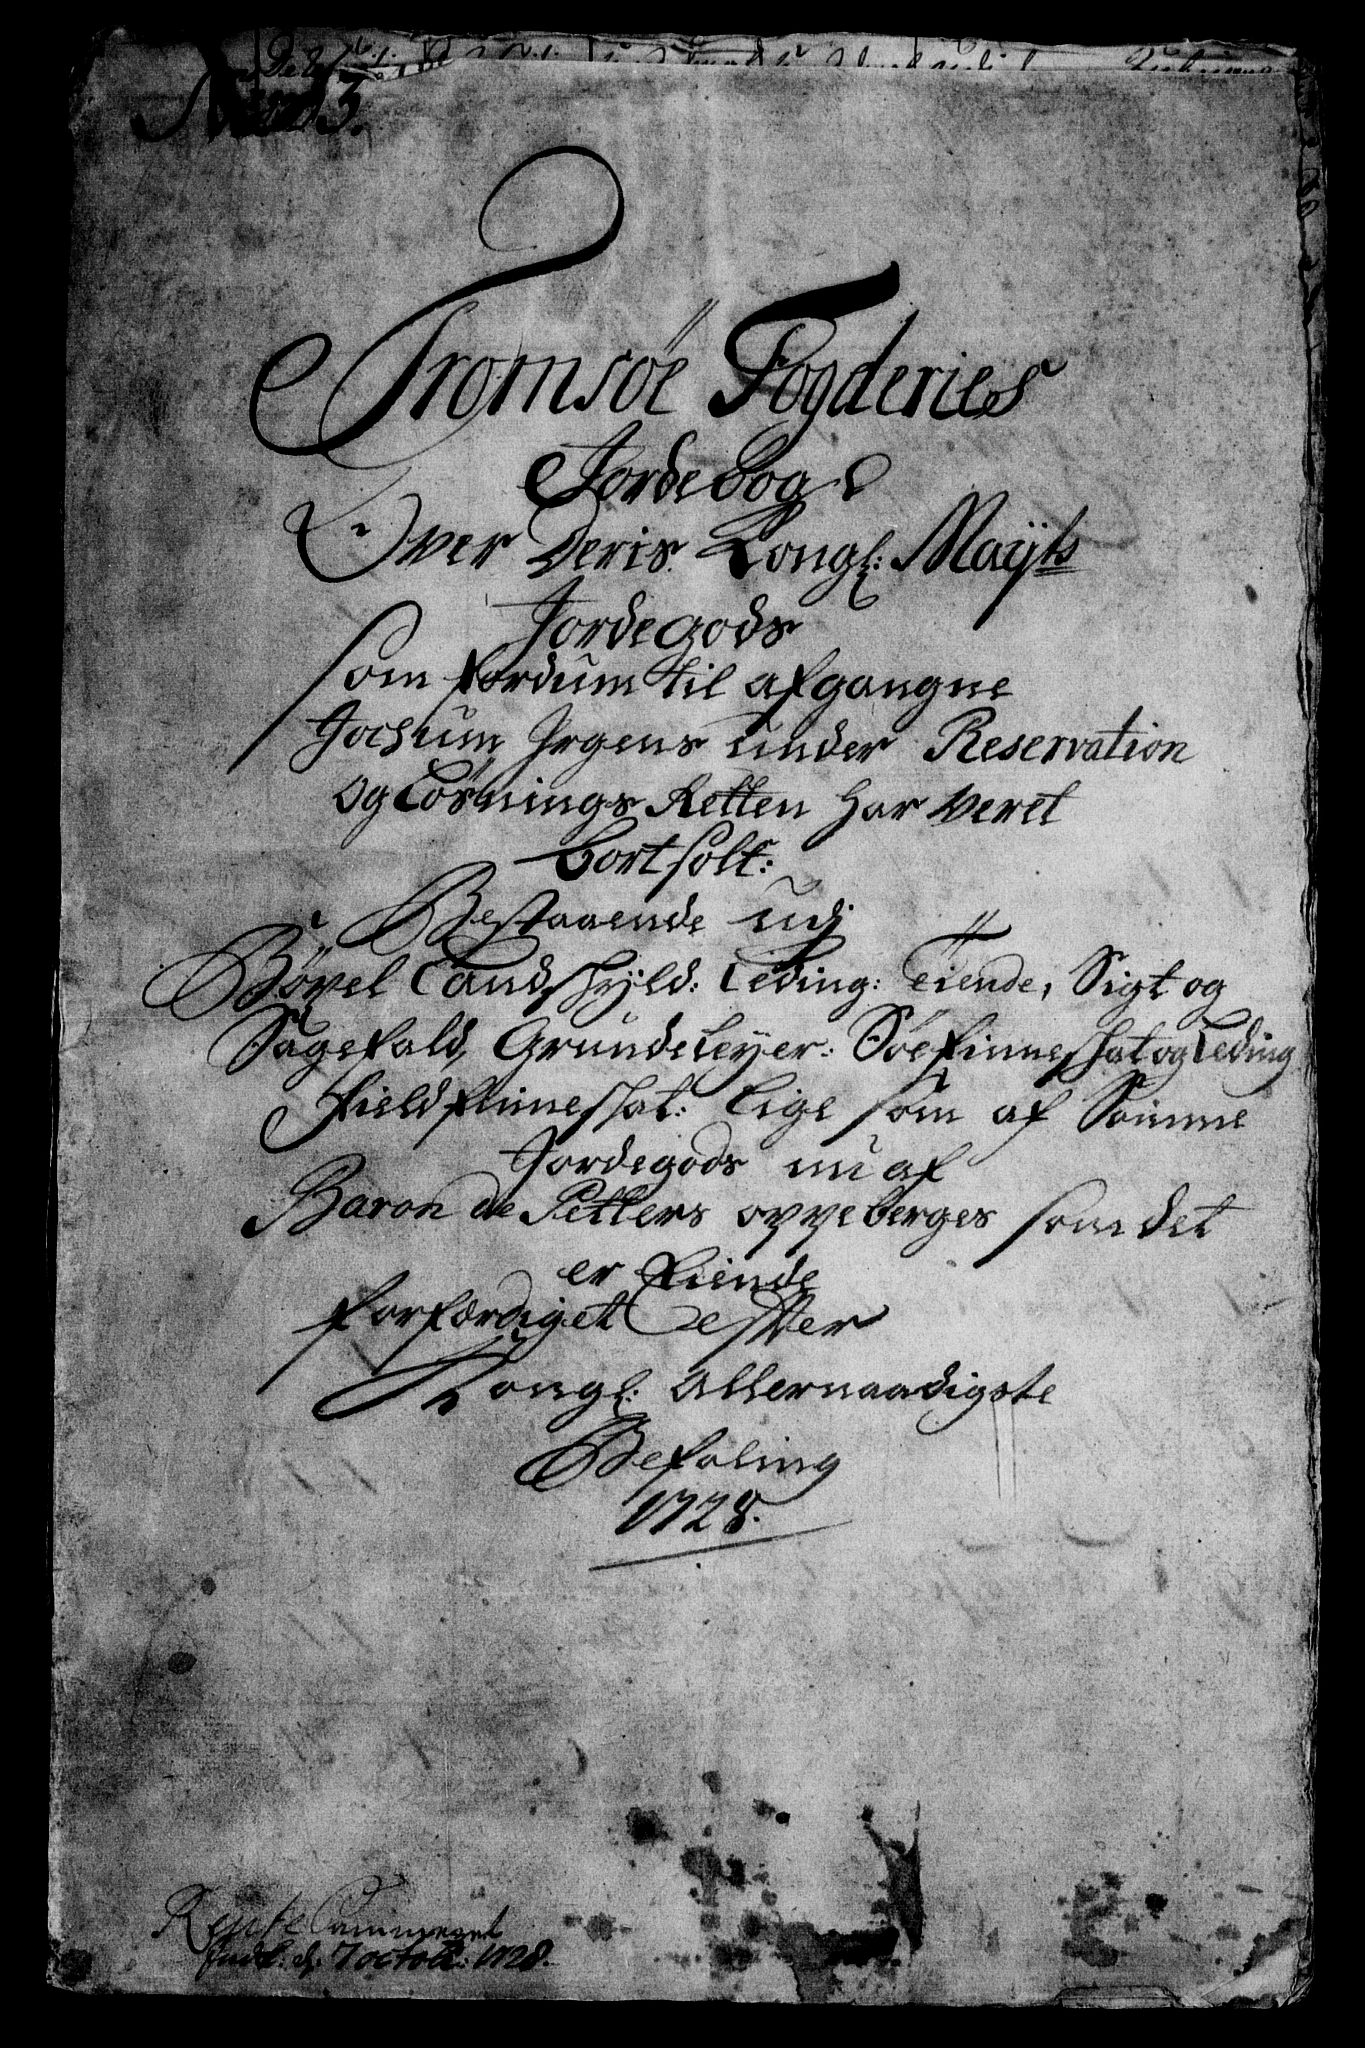 Num 3.
Tromsöe Fogderies
Jordebog
Over Deris Kongl: Mayts
Jordegods
som fordum til afgangne
Jochum Jrgens under Reservation
og Løsnings Retten har veret
bortsolt:
Bestaaende udj
Böxel Landskyld: Leding: Tiende, Sigt og
Sagefald, Grundeleyer: Söefinneskat og Leding
Fieldfinneskat: Lige som af Samme
Jordegods nu af
Baron de Petters oppeberges som det
er fliende
forfærdiget Efter
Kongl: Allernaadigste
Befaling
1728.
Rente Cammeret
Indl: d. 7 octob: 1728.